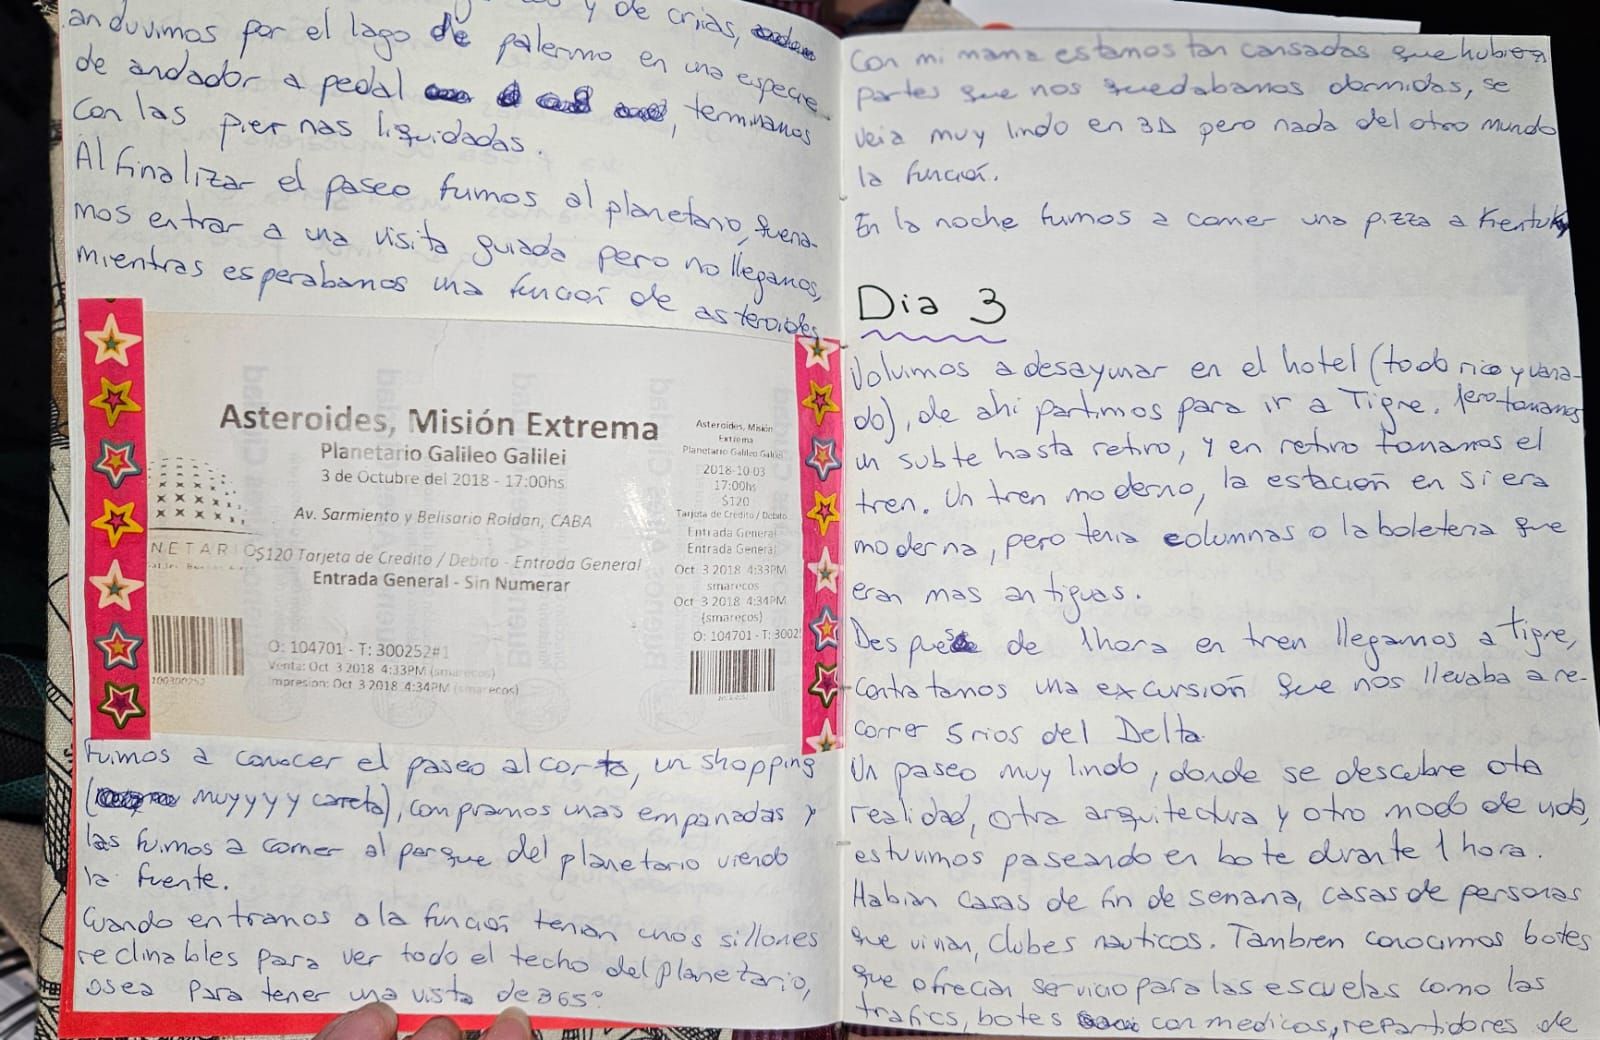 y de crias,
anduvimos por el lago de palermo en una especie
de andador a pedal, terminamos
con las piernas liquidadas.
Al finalizar el paseo fuimos al planetario, quena-
mos entrar a una visita guiada pero no llegamos,
mientras esperabamos una función de asteroides
Asteroides, Misión Extrema
Planetario Galileo Galilei
3 de Octubre del 2018 - 17:00hs
Av. Sarmiento y Belisario Roldan, CABA
NETARIO
$120 Tarjeta de Credito / Debito - Entrada General
Entrada General - Sin Numerar
O: 104701 - T: 300252#1
Venta: Oct 3 2018 4:33PM (smarecos)
Impresion: Oct 3 2018 4:34PM (smarecos)
100300252
Asteroides, Misión
Extrema
Planetario Galileo Galilei
2018-10-03
17:00hs
$120
Tarjeta de Credito / Debito
Entrada General
Entrada General
Oct 3 2018 4:33PM
smarecos
Oct 3 2018 4:34PM
(smarecos)
O: 104701 - T: 3002
Fuimos a conocer el paseo alcorta, un shopping
(muyyyy careta), compramos unas empanadas y
las fuimos a comer al parque del planetario viendo
la fuente.
Cuando entramos a la función tenian unos sillones
reclinables para ver todo el techo del planetario,
osea para tener una vista de 365°
Con mi mama estamos tan cansadas que hubieron
partes que nos quedabamos dormidas, se
veia muy lindo en 3D pero nada del otro mundo
la función.
En la noche fuimos a comer una pizza a Kentuky
Dia 3
Volvimos a desayunar en el hotel (todo rico y varia-
do), de ahi partimos para ir a Tigre. Pero tomamos
un subte hasta retiro, y en retiro tomamos el
tren. Un tren moderno, la estación en si era
moderna, pero tenia columnas o la boleteria que
eran mas antiguas.
Despues de 1 hora en tren llegamos a Tigre,
contratamos una excursión que nos llevaba a re-
correr 5 rios del Delta.
Un paseo muy lindo, donde se descubre otra
realidad, otra arquitectura y otro modo de vida,
estuvimos paseando en bote durante 1 hora.
Habian casas de fin de semana, casas de personas
que vivian, clubes nauticos. Tambien conocimos botes
que ofrecian servicio para las escuelas como las
trafics, botes con medicos, repartidores de